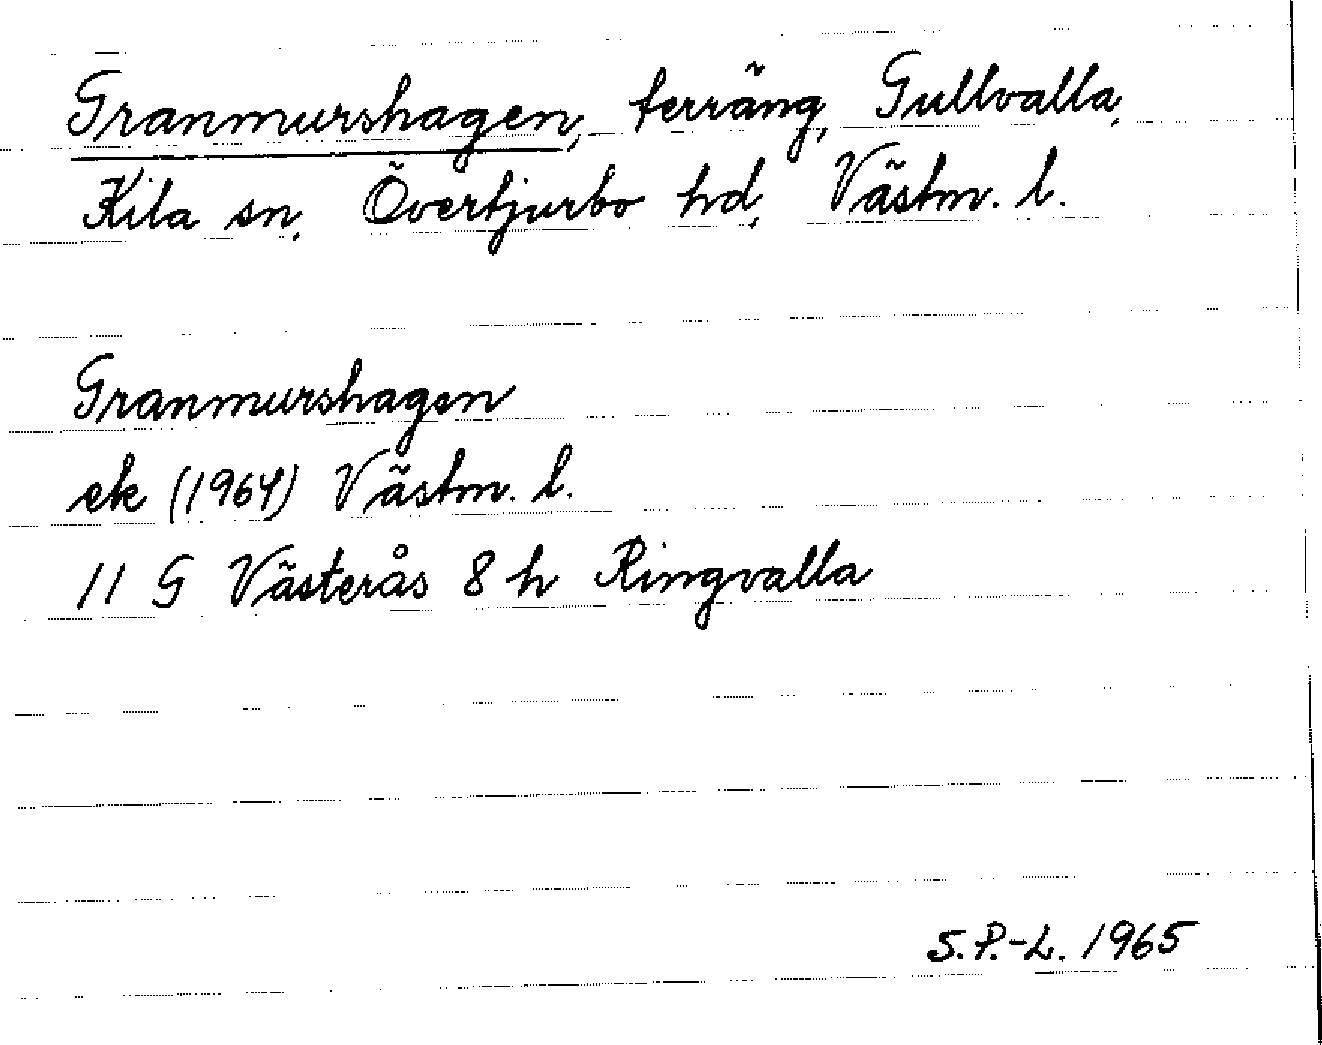 Granmurshagen, terräng, Gullvalla,
Kila sn, Övertjurbo hd, Västm. l.
Granmurshagen
ek (1964) Västm. l.
11 G Västerås 8 h Ringvalla
S.P.-L. 1965